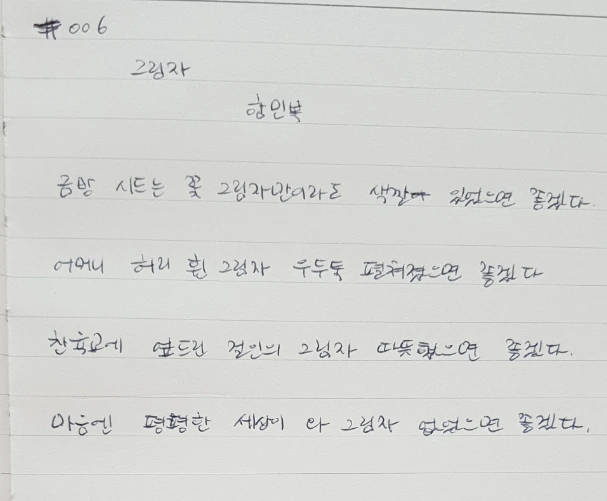 #006
그림자
함민복
금방 시드는 꽃 그림자만이라도 색깔이 있었으면 좋겠다.
어머니 허리 휜 그림자 우두둑 펼쳐졌으면 좋겠다
찬육교에 엎드린 걸인의 그림자 따뜻했으면 좋겠다.
마음엔 평평한 세상이 와 그림자 없었으면 좋겠다.